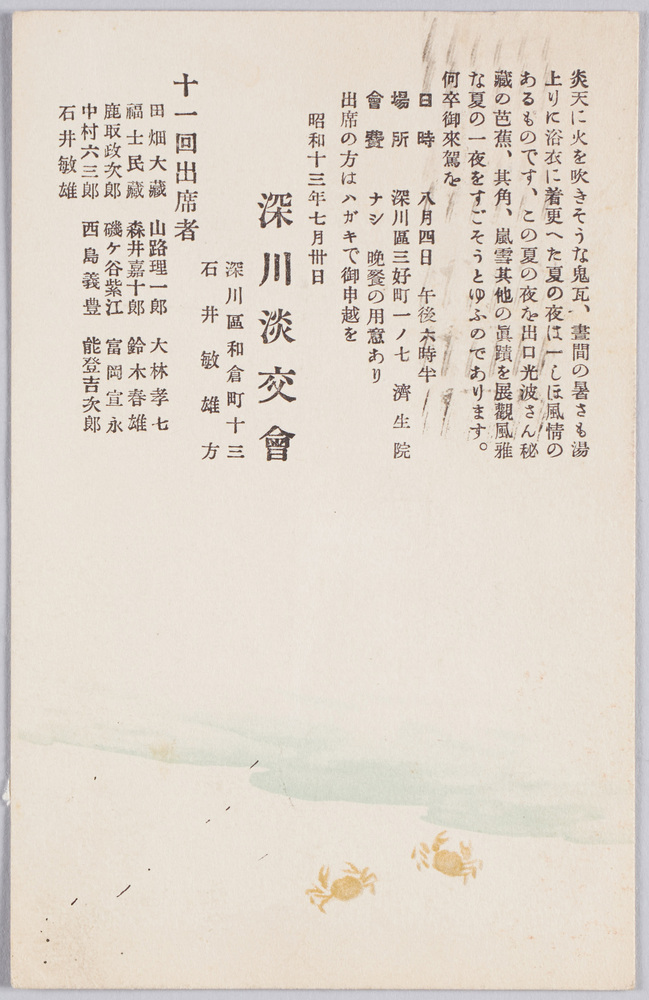 炎天に火を吹きそうな鬼瓦、晝間の暑さも湯
上りに浴衣に着更へた夏の夜は一しほ風情の
あるものです、この夏の夜を出口光波さん秘
藏の芭蕉、其角、嵐雪其他の眞蹟を展觀風雅
な夏の一夜をすごそうとゆふのであります。
何卒御來駕を
日時 八月四日 午後六時半
場所 深川區三好町一ノ七 濟生院
會費 ナシ 晩餐の用意あり
出席の方はハガキで御申越を
昭和十三年七月卅日
深川淡交會
深川區和倉町十三
石井敏雄方
十一回出席者
田畑大藏 山路理一郎 大林孝七
福士民藏 森井嘉十郎 鈴木春雄
鹿取政次郎 磯ケ谷紫江 富岡宣永
中村六三郎 西島義豊 能登吉次郎
石井敏雄